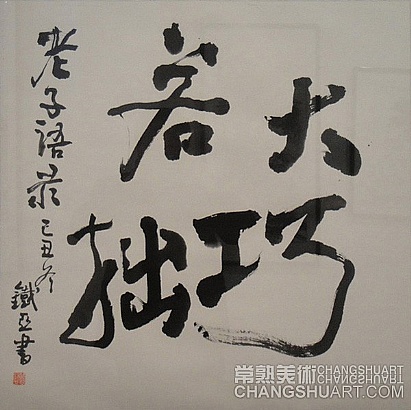 大巧
若拙
老子語录
己丑冬
鐵亞書
常熟美術 CHANGSHUART
CHANGSHUART.COM